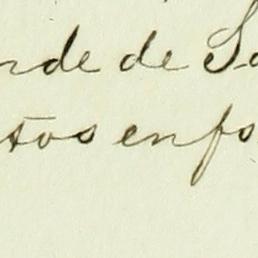 nde de Sa
stos enfo